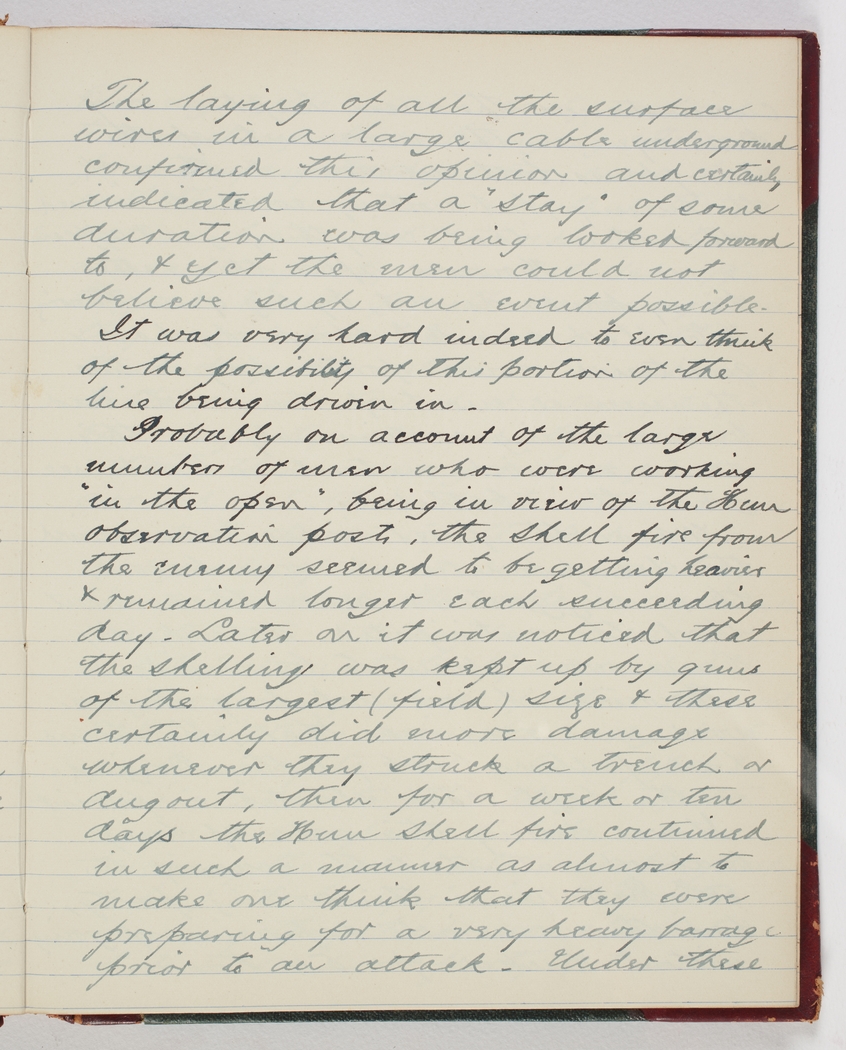 The laying of all the surface
wires in a large "cable underground
confirmed this opinion and certainly
indicated that a "stay" of some
duration was being looked forward
to, & yet the men could not
believe such an event possible.
It was very hard indeed to even think
of the possibility of this portion of the
line being driven in -
Probably on account of the large
numbers of men who were working
"in the open", being in view of the Hun
observation posts, the shell fire from
the enemy seemed to be getting heavier
& remained longer each succeeding
day - Later on it was noticed that
the shelling was kept up by guns
of the largest (field) size & these
certainly did more damage
whenever they struck a trench or
dugout, then for a week or ten
days the Hun shell fire continued
in such a manner as almost to
make one think that they were
preparing for a very heavy barrage
prior to an attack - Under these